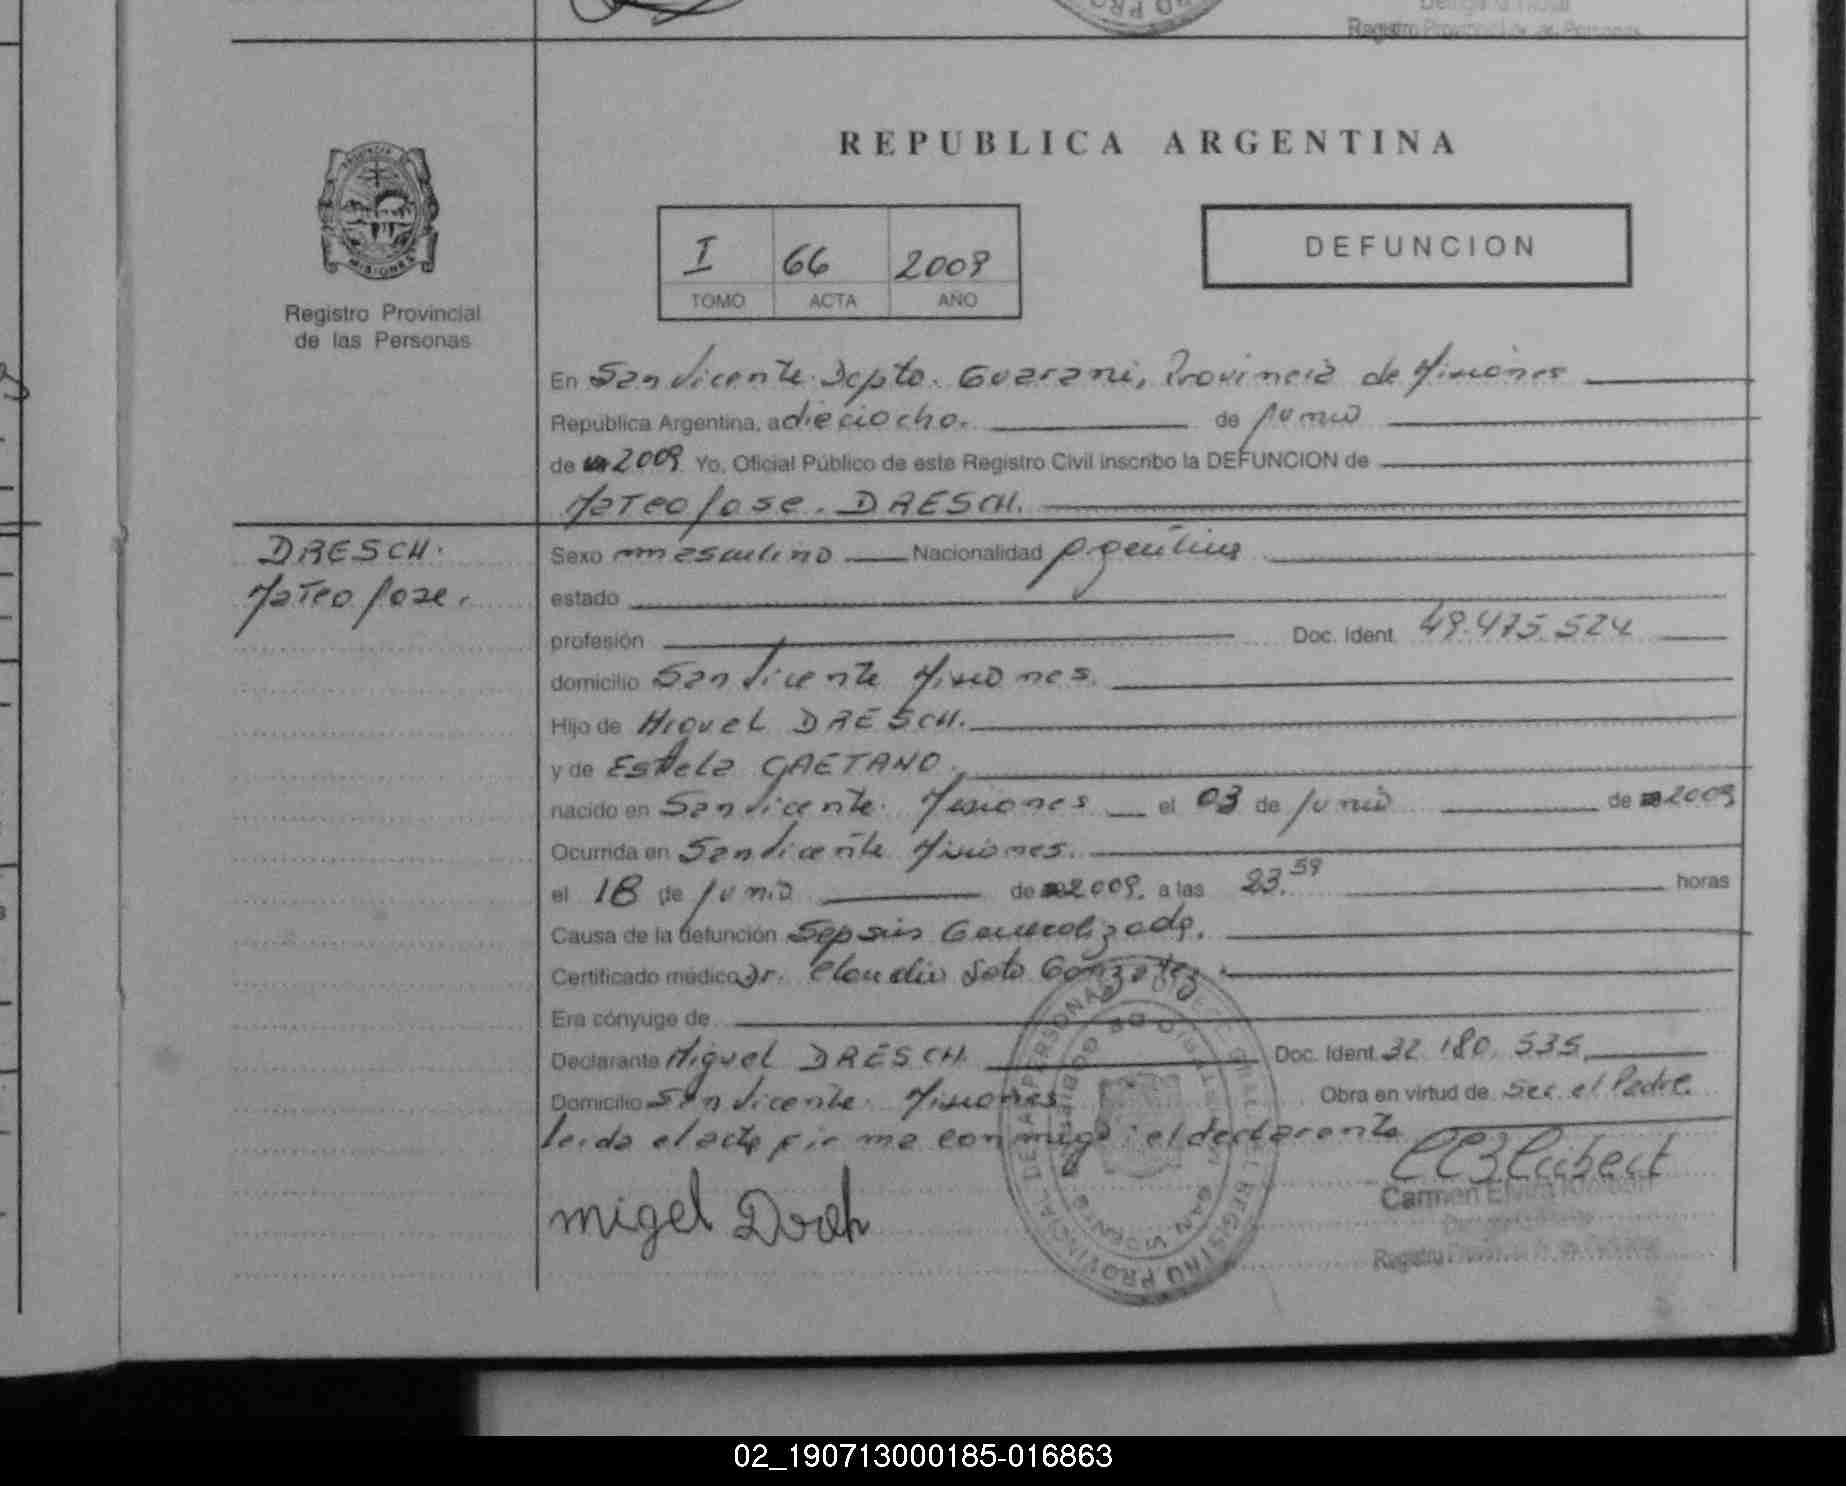 Registro Provincial de las Personas
REPUBLICA ARGENTINA
PROVINCIA DE
MISIONES
Registro Provincial
de las Personas
I 66 2009
TOMO ACTA AÑO
DEFUNCION
En San Vicente. Dcpto. Guarani, Provincia de Misiones
República Argentina, a dieciocho. de junio
de 2009. Yo, Oficial Público de este Registro Civil inscribo la DEFUNCION de
Mateo Jose. DRESCH.
DRESCH.
Mateo Jose.
Sexo masculino Nacionalidad Argentina
estado
profesión Doc. Ident. 49.475.524
domicilio San Vicente Misiones.
Hijo de Miguel DRESCH.
y de Estela GAETANO.
nacido en San Vicente. Misiones el 03 de junio de 2009
Ocurrida en San Vicente Misiones.
el 18 de junio de 2009. a las 23.59 horas
Causa de la defunción Sepsis Generalizada.
Certificado médico Dr. Claudio Soto Gonzalez.
Era cónyuge de
Declarante Miguel DRESCH. Doc. Ident. 32.180.535.
Domicilio San Vicente. Misiones Obra en virtud de Ser el Padre.
leida el acta firma conmigo: el declarante
migel Dreh
Carmen Elvira
Registro Provincial de las Personas
02_190713000185-016863